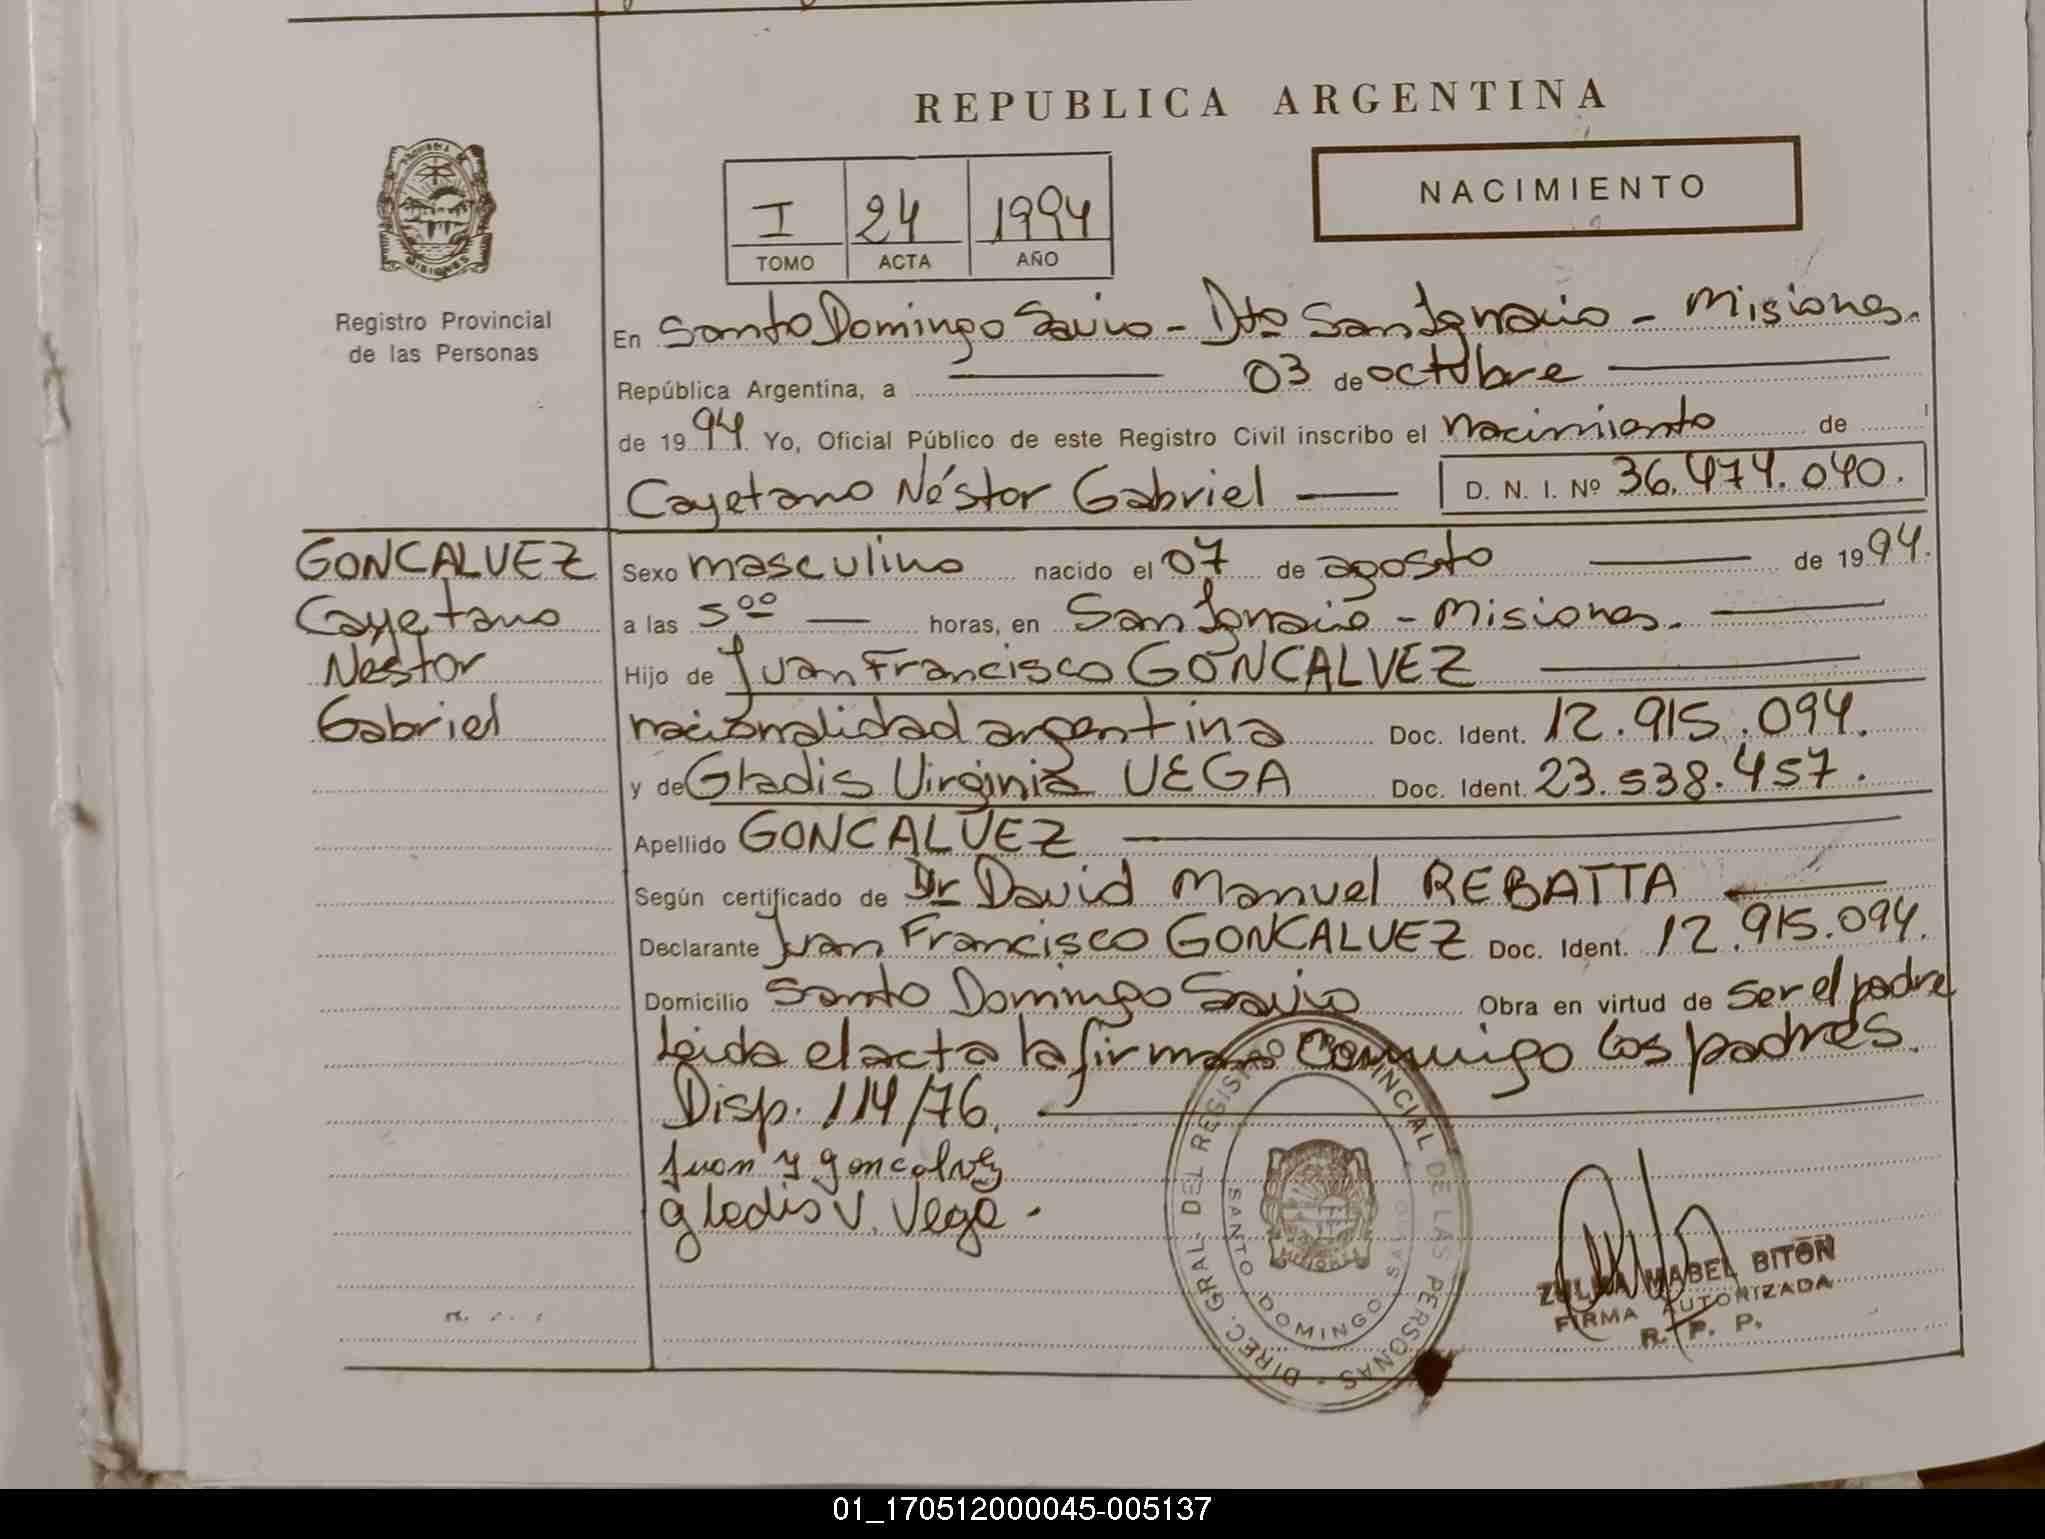 REPUBLICA ARGENTINA
PROVINCIA DE
MISIONES
Registro Provincial
de las Personas
I 24 1994
TOMO ACTA AÑO
NACIMIENTO
En Santo Domingo Savio - Dto San Ignacio - Misiones.
República Argentina, a 03 de octubre
de 1994. Yo, Oficial Público de este Registro Civil inscribo el nacimiento de
Cayetano Néstor Gabriel D. N. I. Nº 36.474.040.
GONCALVEZ
Cayetano
Néstor
Gabriel
Sexo masculino nacido el 07 de agosto de 1994.
a las 5ºº horas, en San Ignacio - Misiones.
Hijo de Juan Francisco GONCALVEZ
nacionalidad argentina Doc. Ident. 12.915.094.
y de Gladis Virginia VEGA Doc. Ident. 23.538.457.
Apellido GONCALVEZ
Según certificado de Dr David Manuel REBATTA
Declarante Juan Francisco GONCALVEZ Doc. Ident. 12.915.094.
Domicilio Santo Domingo Savio Obra en virtud de ser el padre
Leida el acta la firman conmigo los padres.
Disp. 114/76.
Juan y goncalvez
gladis V. Vega.
DIREC. GRAL. DEL REGISTRO PROVINCIAL DE LAS PERSONAS
SANTO DOMINGO SAVIO
MISIONES
ZULMA MABEL BITÓN
FIRMA AUTORIZADA
R. P. P.
01_170512000045-005137